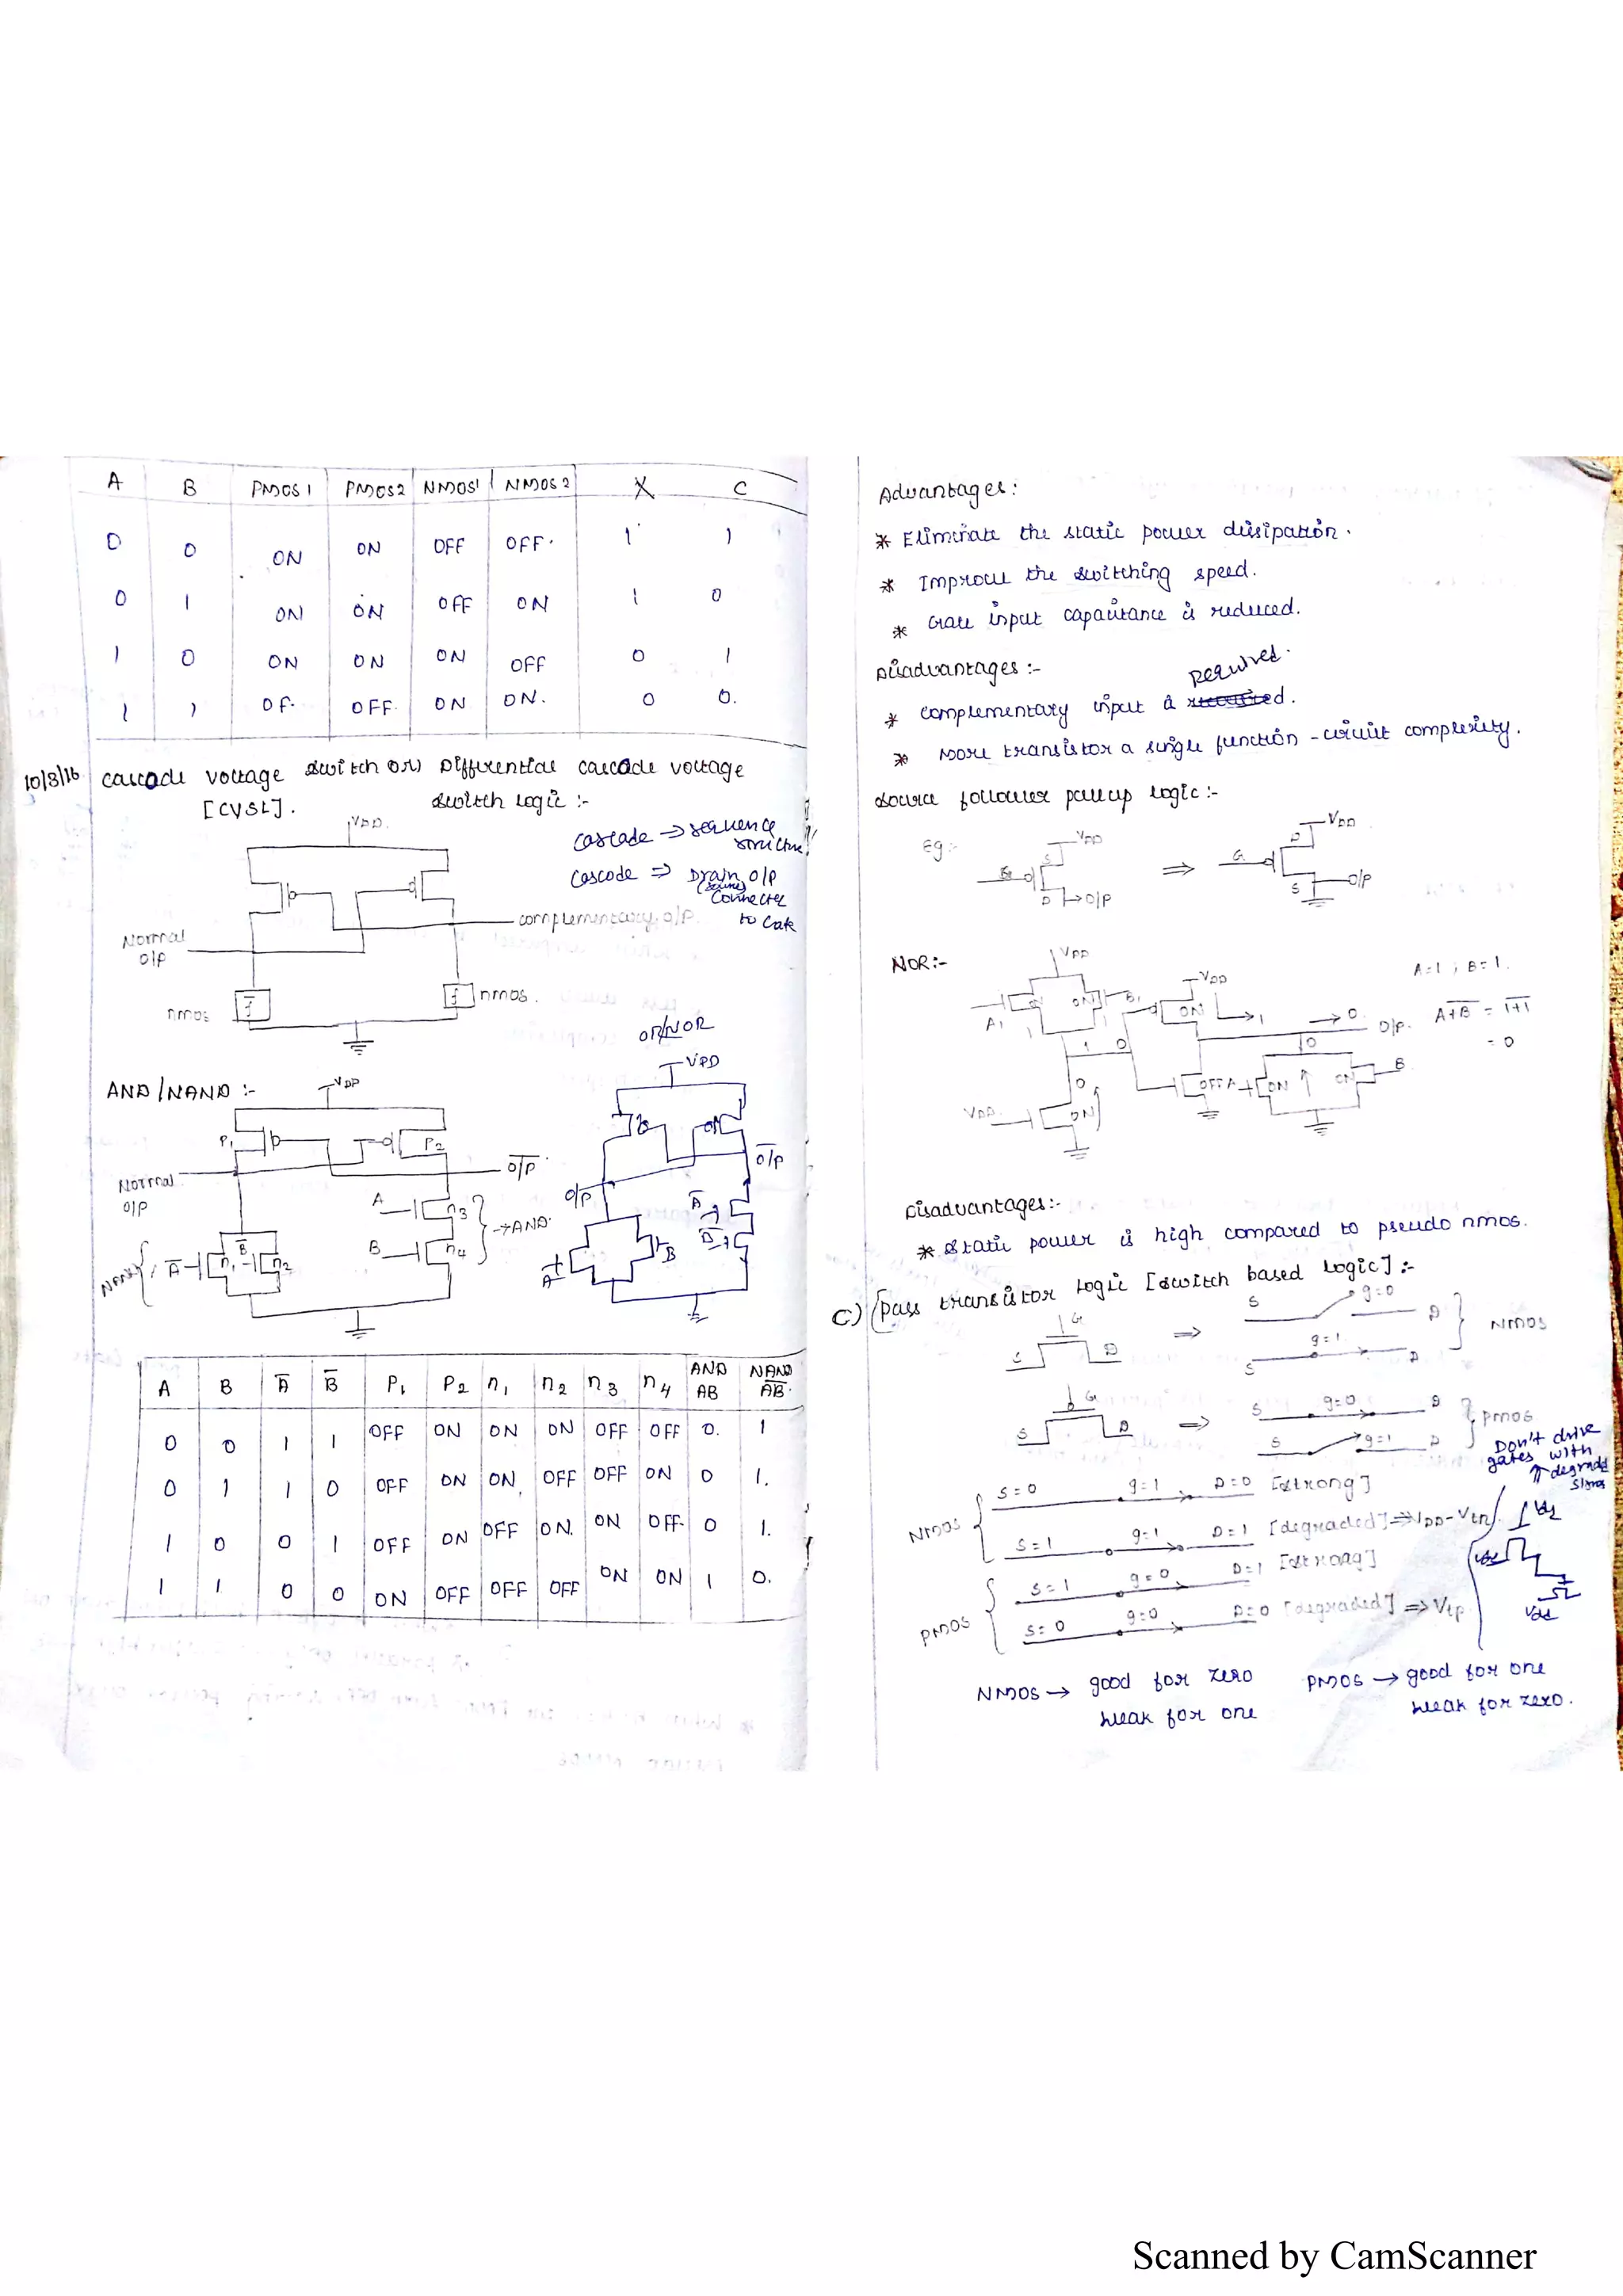 A B PMOS 1 PMOS2 NMOS1 NMOS 2 X C
0 0 ON ON OFF OFF. 1 1
0 1 ON ON OFF ON 1 0
1 0 ON ON ON OFF 0 1
1 1 OF. OFF. ON ON. 0 0.
10/8/16 cascade voltage switch (or) Differential cascade voltage
[CVSL]. switch logic :-
VDD.
cascade → sequence
structure
cascode ⇒ Drain o/p
connected
to Gate
complementary o/p.
Normal
o/p
nmos f̄ f nmos.
OR/NOR
VDD
AND/NAND :- VDD
P1 P2
Normal
o/p
o/p̅
A n3
→AND
B n4
A̅ n1 B̅ n2
o/p o/p̅
A̅
B̅
A B
A B A̅ B̅ P1 P2 n1 n2 n3 n4 AND AB NAND A̅B̅.
0 0 1 1 OFF ON ON ON OFF OFF 0. 1
0 1 1 0 OFF ON ON. OFF OFF ON 0 1.
1 0 0 1 OFF ON OFF ON. ON OFF. 0 1.
1 1 0 0 ON OFF OFF OFF ON ON 1 0.
Advantages:
* Eliminate the static power dissipation.
* Improve the switching speed.
* Gate input capacitance is reduced.
Disadvantages :-
required.
* complementary input is
* More transistor a single function - circuit complexity.
source follower pullup logic :-
Eg :- VDD S D →o/p ⇒ G D VDD S o/p
NOR:- VDD VDD A=1 ; B=1.
A1 ON ON B1 ON → 1 → 0 o/p. A̅+̅B̅ = 1̅+̅1̅
= 0
1 1 1 0 0
0 OFF A ON ON B
VDD ON
Disadvantages:-
* Static power is high compared to pseudo nmos.
c) [pass transistor logic [switch based logic] :-
G S D ⇒ S g=0 D
S g=1 D } NMOS
G S D ⇒ S g=0 D
S g=1 D } pmos
Don't drive
gates with
⇑ degraded
NMOS { S=0 g=1 D=0 [strong]
S=1 g=1 D=1 [degraded] ⇒ VDD-Vtn
PMOS { S=1 g=0 D=1 [strong]
S=0 g=0 D=0 [degraded] ⇒ Vtp
Vdd
NMOS → good for zero PMOS → good for one
weak for one weak for zero.
Scanned by CamScanner